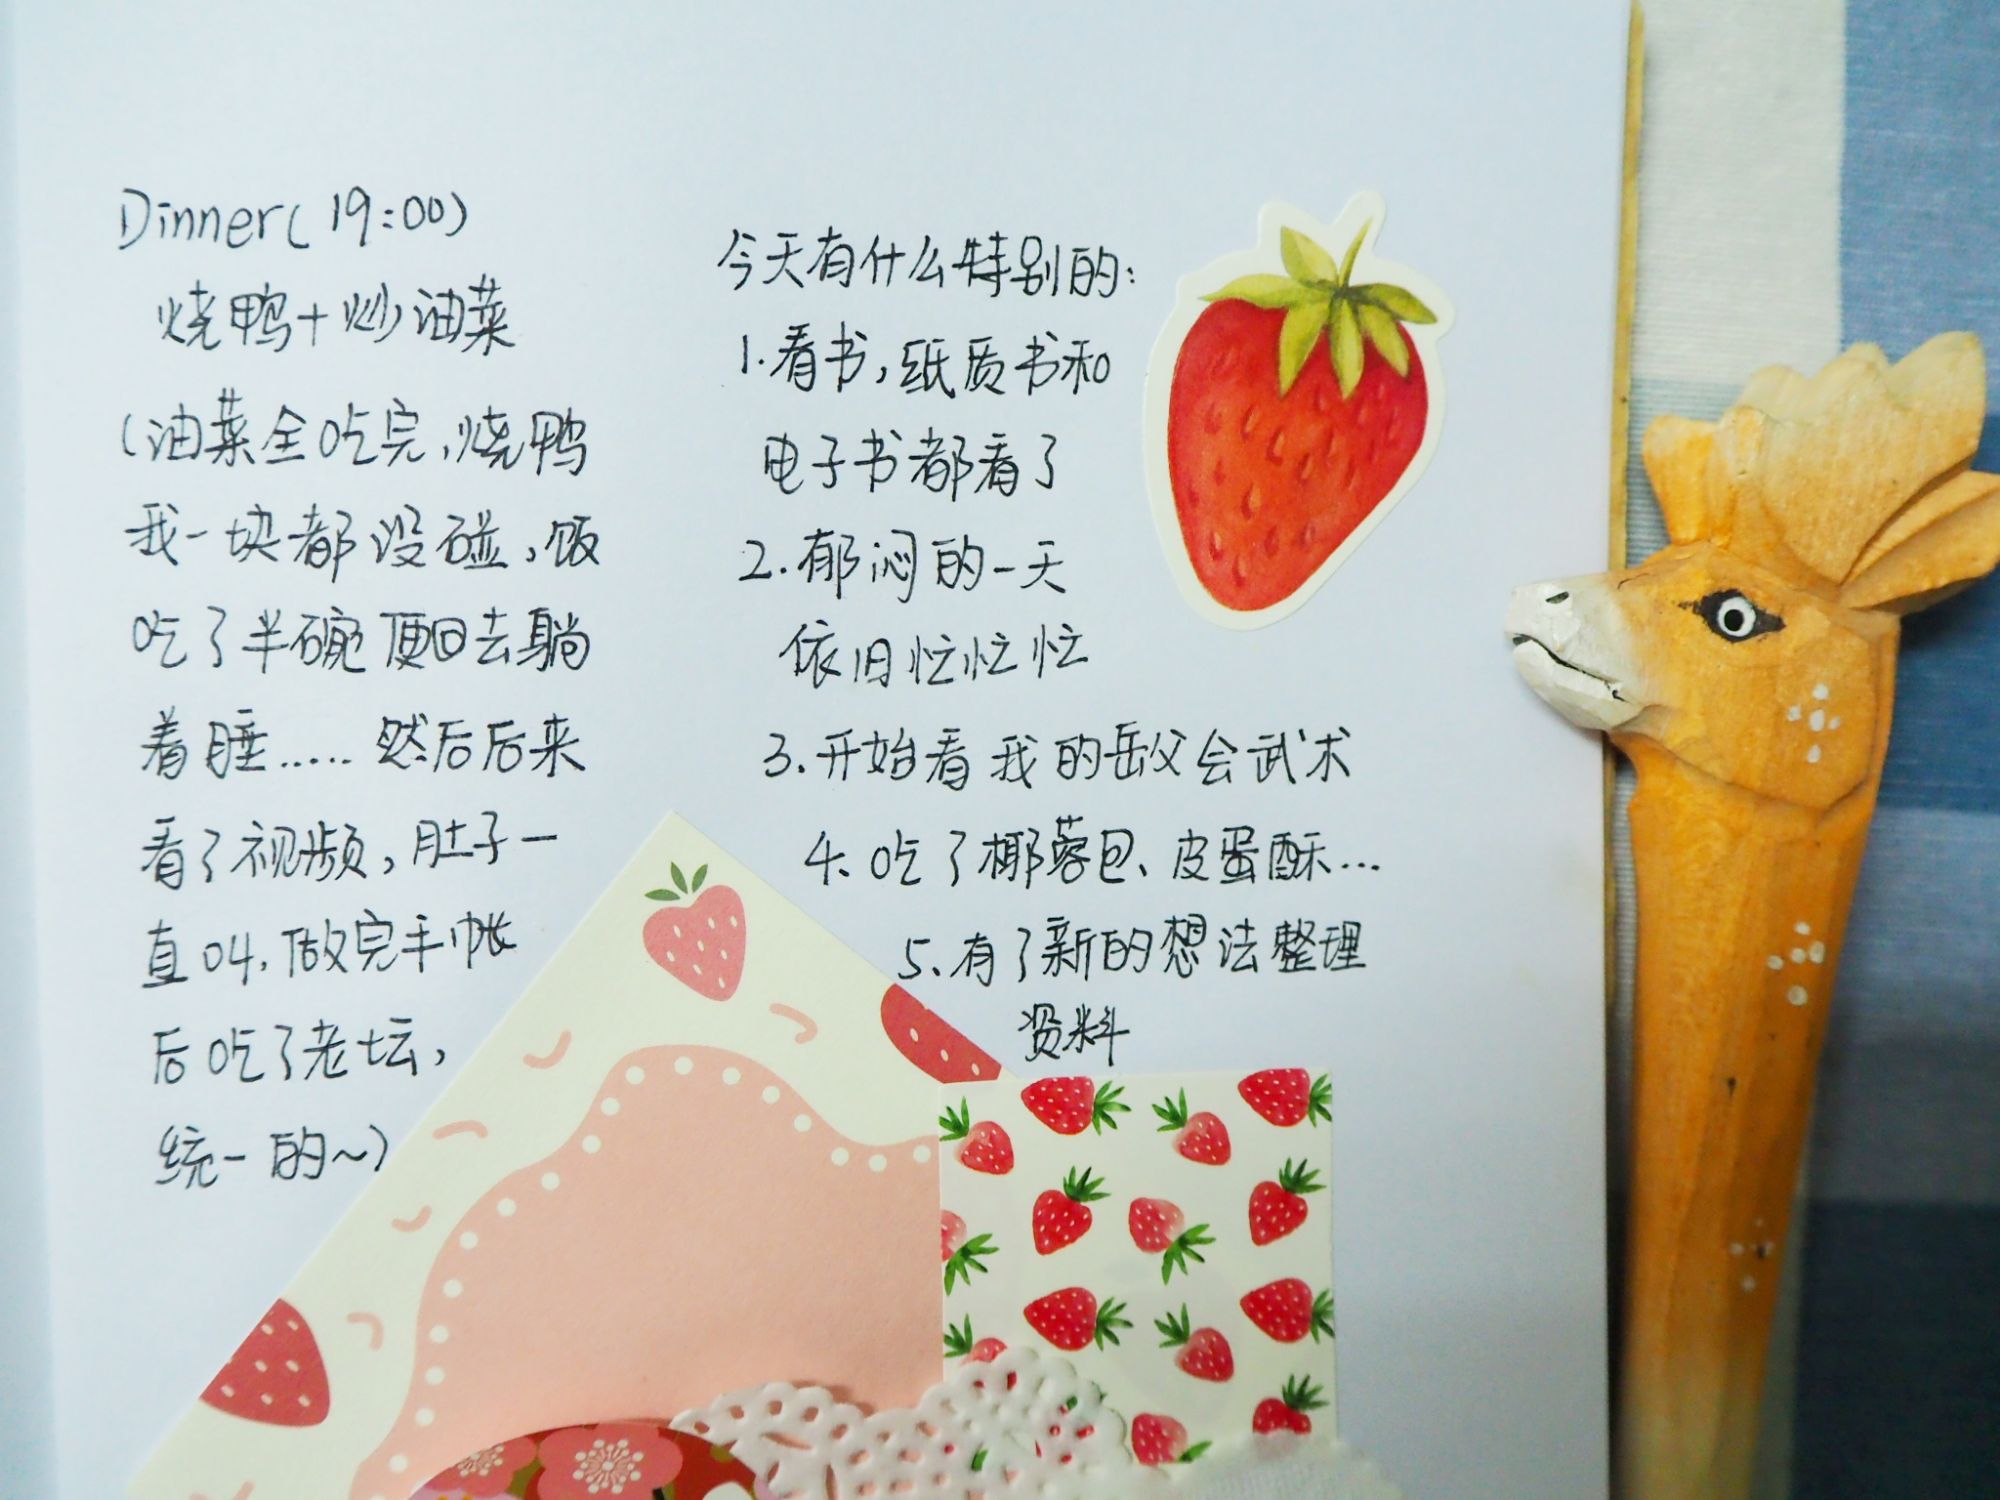 Dinner(19:00)
烧鸭+炒油菜
(油菜全吃完,烧鸭
我一块都没碰,饭
吃了半碗便回去躺
着睡……然后后来
看了视频,肚子一
直叫,做完手帐
后吃了老坛,
统一的~)
今天有什么特别的:
1.看书,纸质书和
电子书都看了
2.郁闷的一天
依旧忙忙忙
3.开始看我的岳父会武术
4、吃了椰蓉包、皮蛋酥…
5、有了新的想法整理
资料